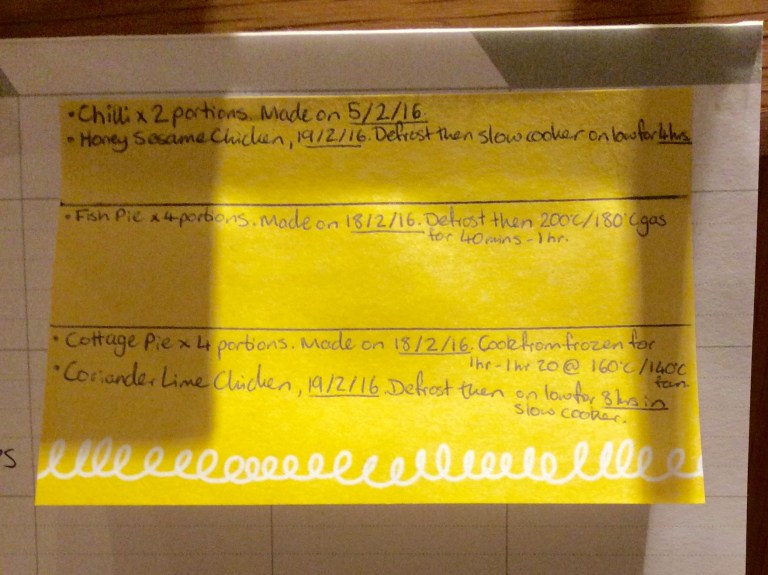 • Chilli x 2 portions. Made on 5/2/16.
• Honey Sesame Chicken, 19/2/16. Defrost then slow cooker on low for 4hrs
• Fish Pie x 4 portions. Made on 18/2/16. Defrost then 200°C/180°C gas
for 40mins - 1hr.
• Cottage Pie x 4 portions. Made on 18/2/16. Cook from frozen for
1hr - 1hr 20 @ 160°C/140°C
fan.
• Coriander Lime Chicken, 19/2/16. Defrost then on low for 8hrs in
slow cooker.